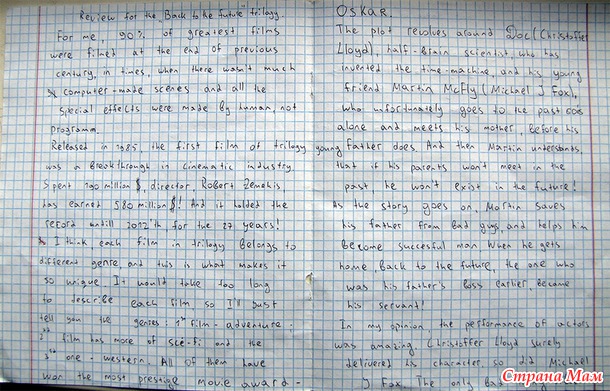 Review for the "Back to the future" trilogy.
For me, 90% of greatest films
were filmed at the end of previous
century, in times, when there wasn't much
computer-made scenes and all the
special effects were made by human, not
programm.
Released in 1985, the first film of trilogy
was a breakthrough in cinematic industry.
Spent million $, director, Robert Zemekis,
has earned 580 million $! And it holded the
record untill 2012'th for the 27 years!
I think each film in trilogy belongs to
different genre and this is what makes it
so unique. It would take too long
to describe each film so I'll just
tell you the genres: 1st film - adventure;
2nd film has more of sce-fi and the
3rd one - western. All of them have
won the most prestige movie award -
OSKAR.
The plot revolves around Doc (Christoffer
Lloyd), half-brain scientist, who has
invented the time-machine, and his young
friend Martin McFly (Michael J Fox),
who unfortunately goes to the past
alone and meets his mother, before his
young father does. And then Martin understands,
that if his parents won't meet in the
past he won't exist in the future!
As the story goes on, Martin saves
his father from bad guys, and helps him
become succesful man. When he gets
home, back to the future, the one who
was his father's boss earlier, became
his servant!
In my opinion, the performance of actors
was amazing. Christoffer Lloyd surely
delivered his character so did Michael
J Fox. The only bad
Страна Мам